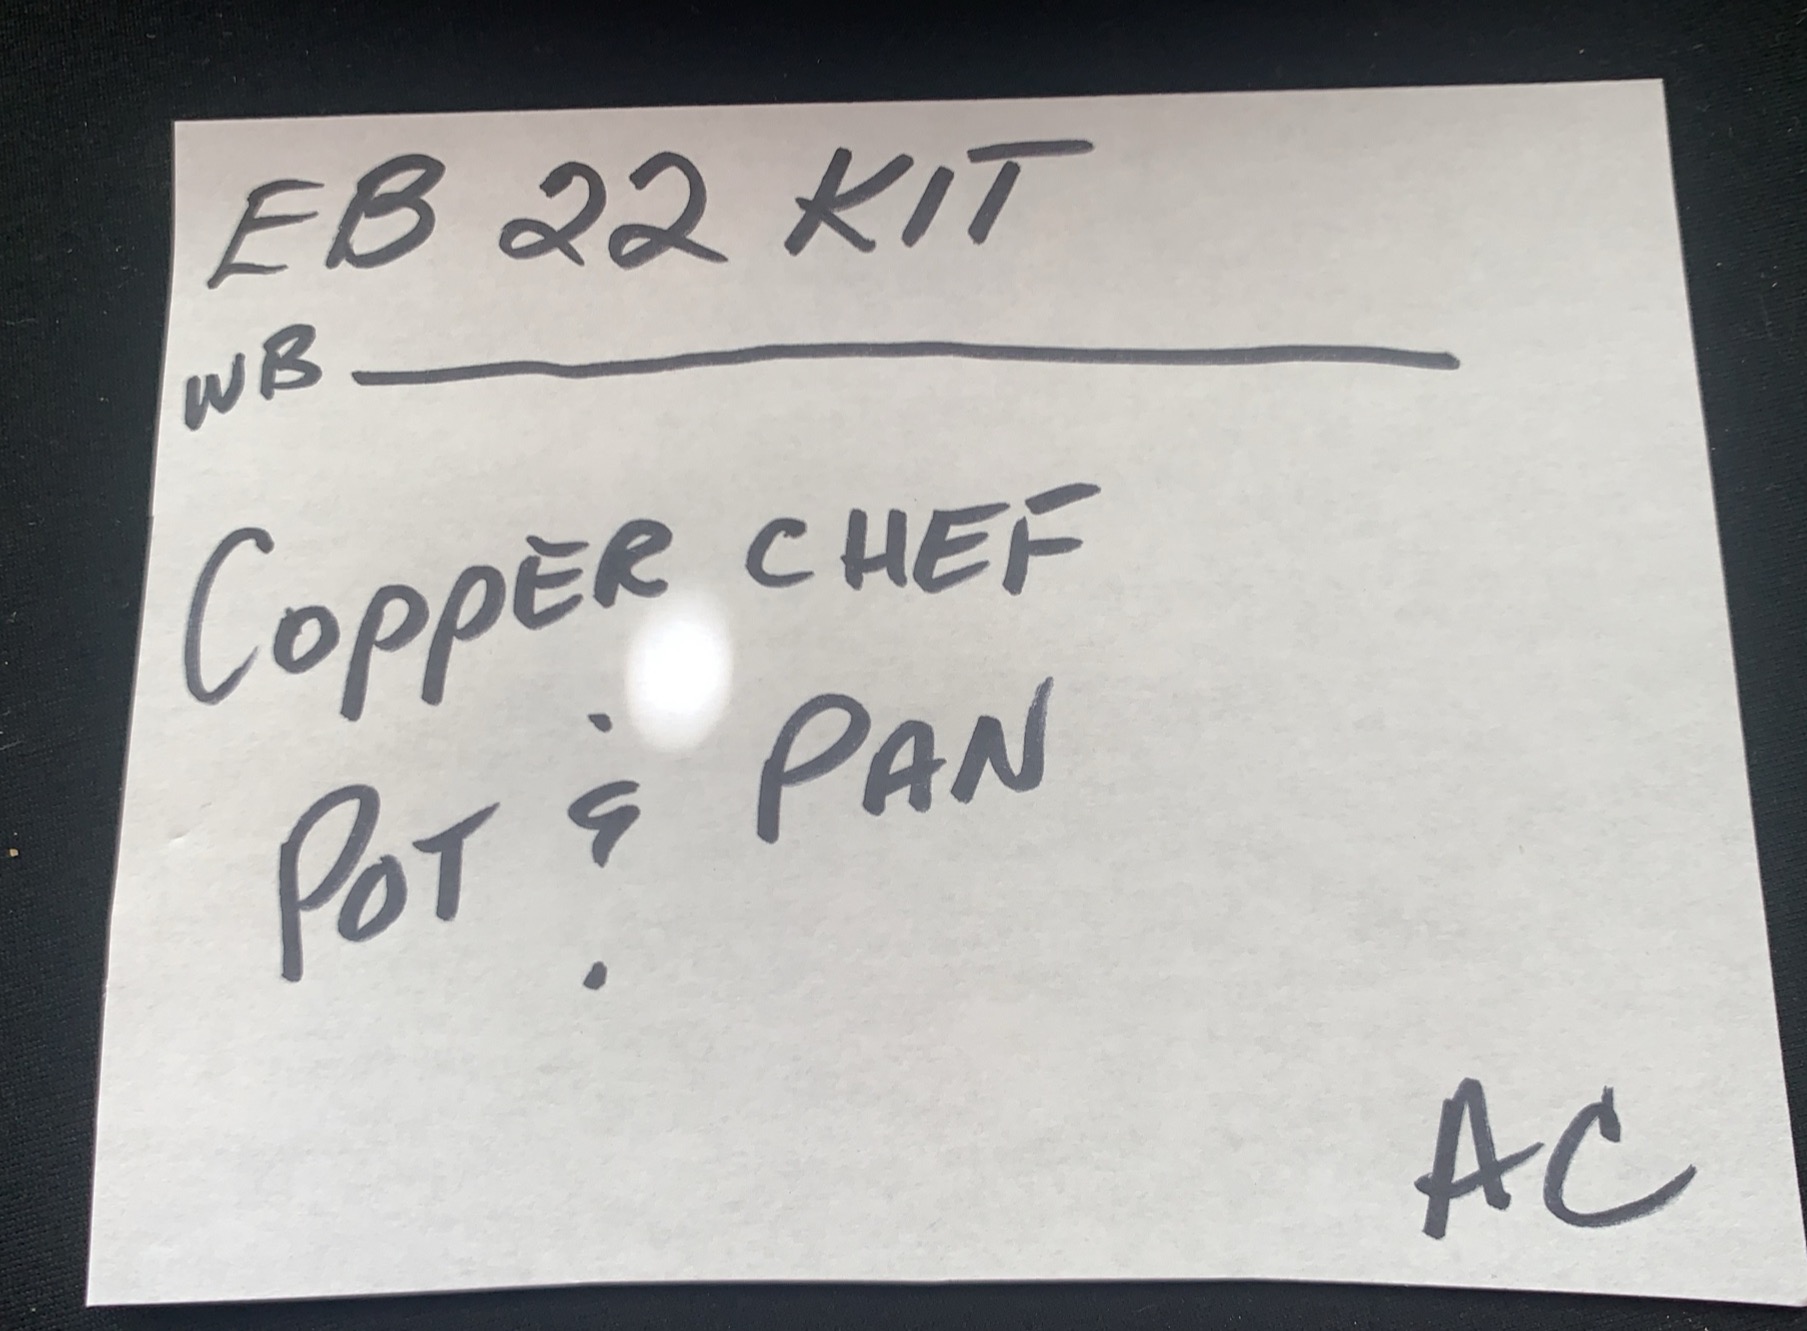 EB 22 KIT
WB ____________
COPPER CHEF
POT & PAN
AC